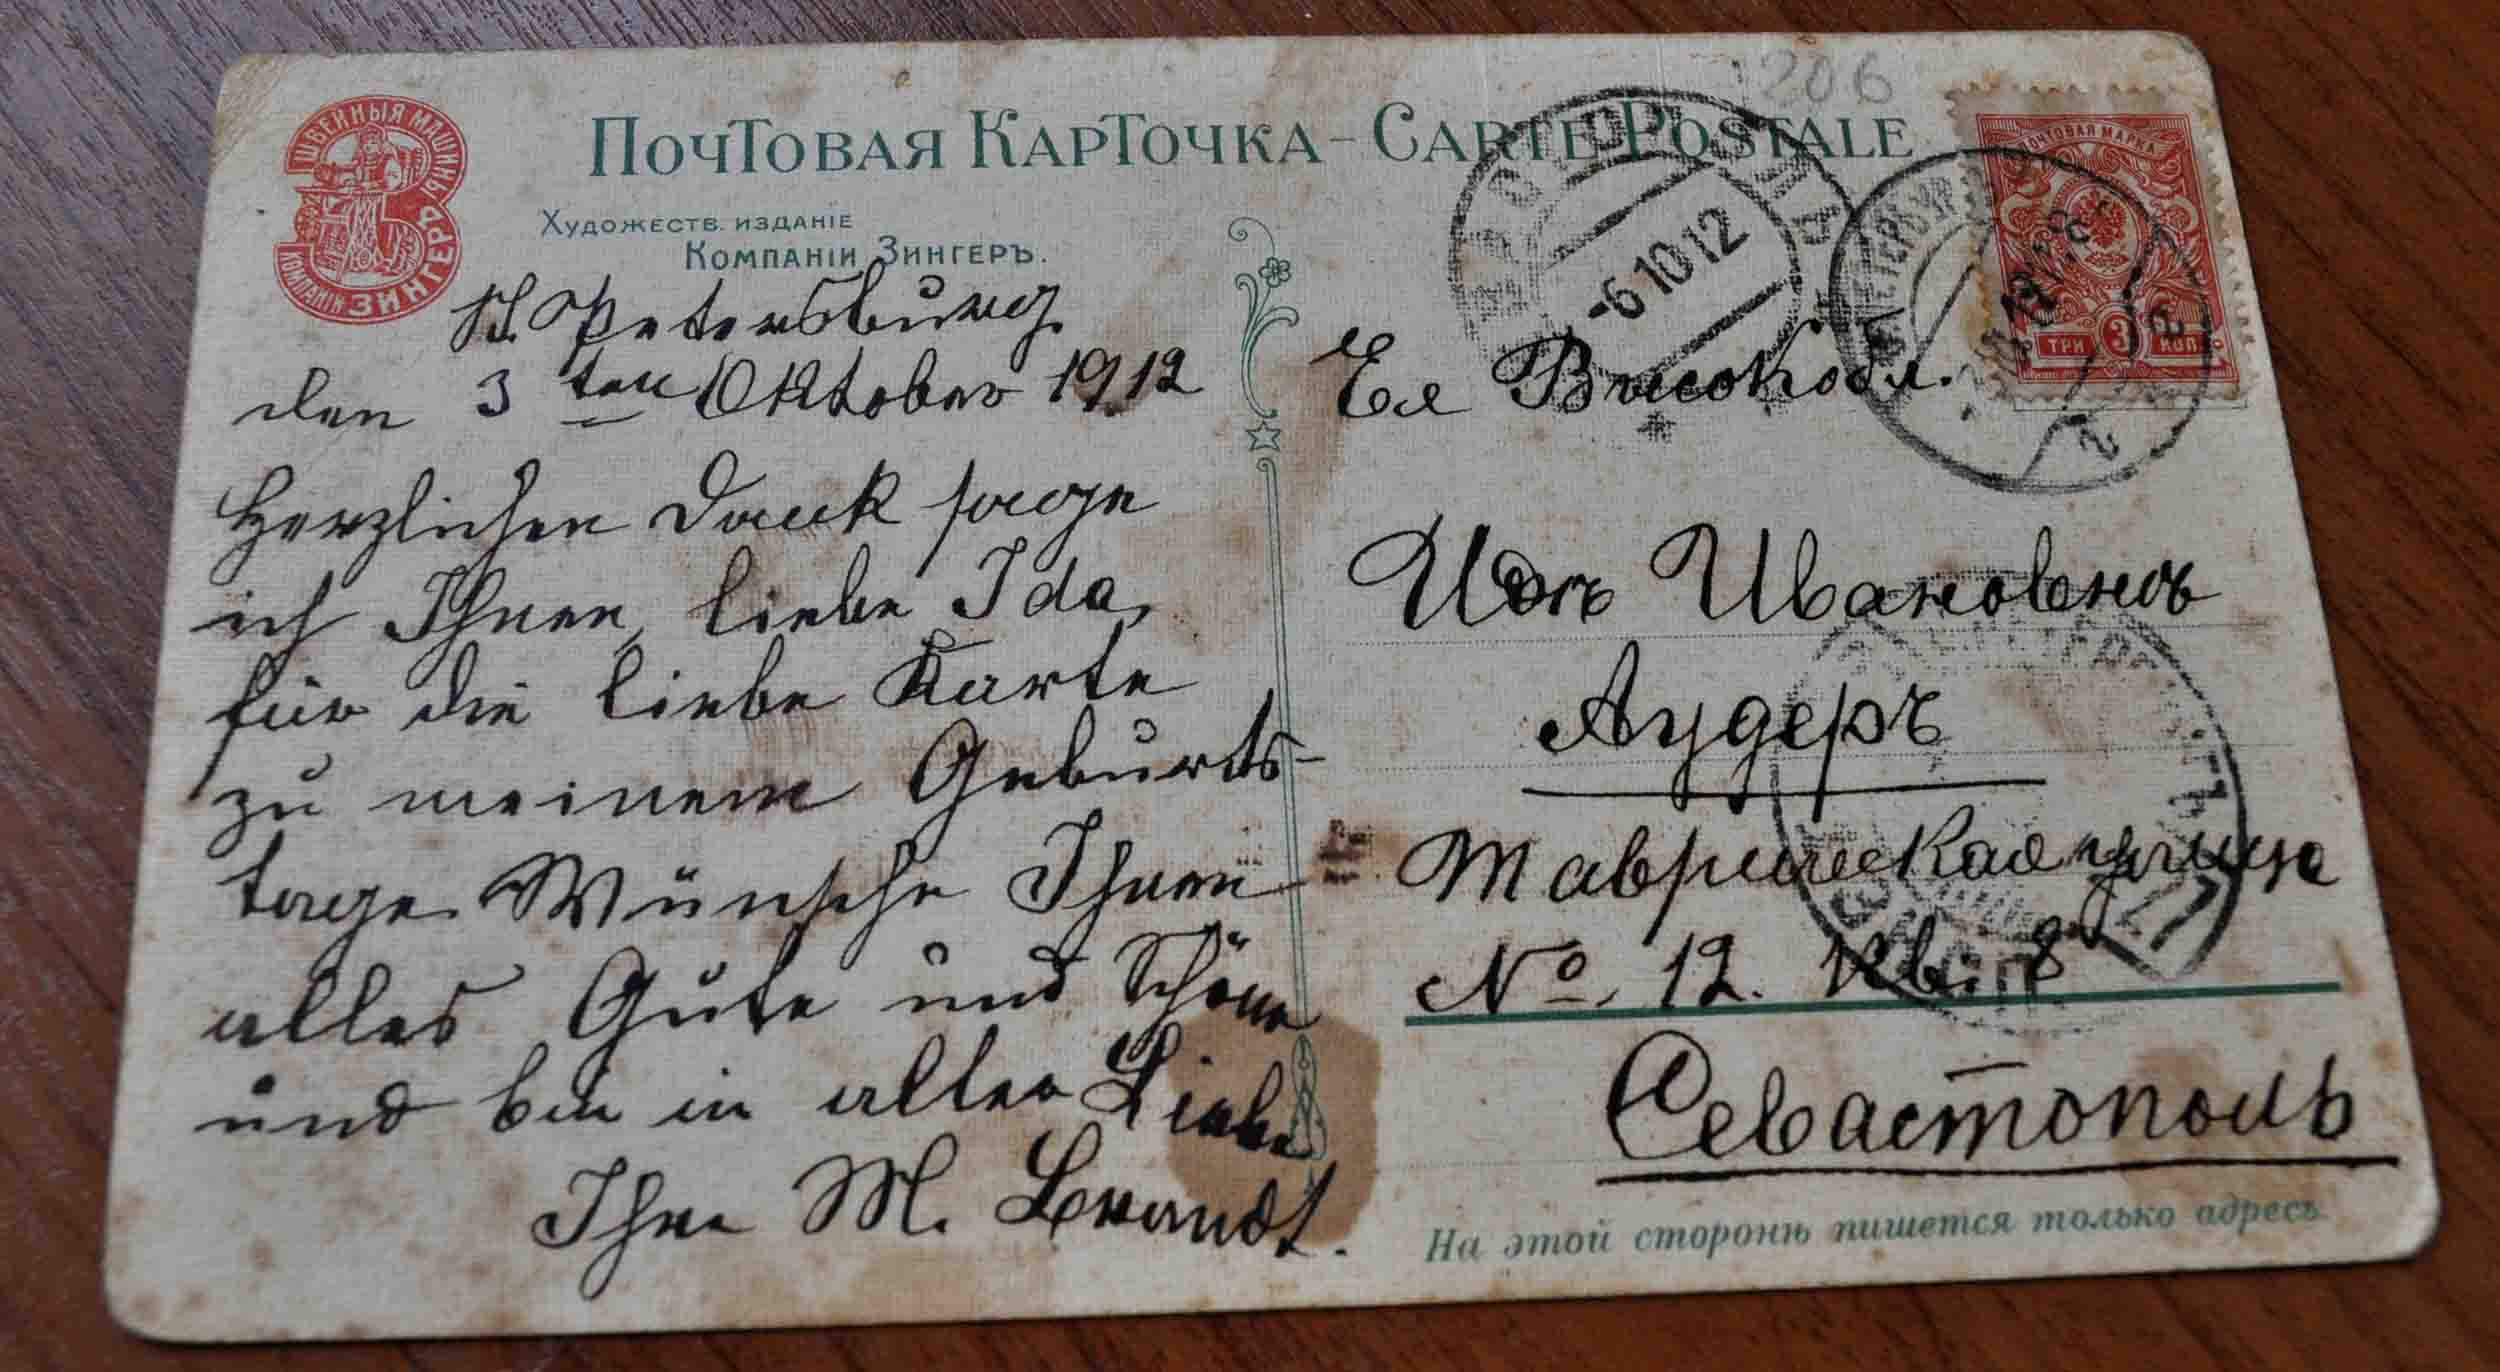 ШВЕЙНЫЯ МАШИНЫ
КОМПАНІИ ЗИНГЕРЪ
ПОЧТОВАЯ КАРТОЧКА - CARTE POSTALE
ХУДОЖЕСТВ. ИЗДАНІЕ
КОМПАНІИ ЗИНГЕРЪ.
206
St. Petersburg
den 3ten Oktober 1912
Herzlichen Dank sage
ich Ihnen, liebe Ida,
für die liebe Karte
zu meinem Geburts-
tage. Wünsche Ihnen
alles Gute und Schöne
und bin in aller Liebe
Ihre M. Brandt.
-6 10 12
ПОЧТОВАЯ МАРКА
ТРИ 3 КОП
Ея Высокобл.
Идѣ Ивановнѣ
Аудеръ
Таврическая улица
No. 12. кв. 8
Севастополь
На этой сторонѣ пишется только адресъ